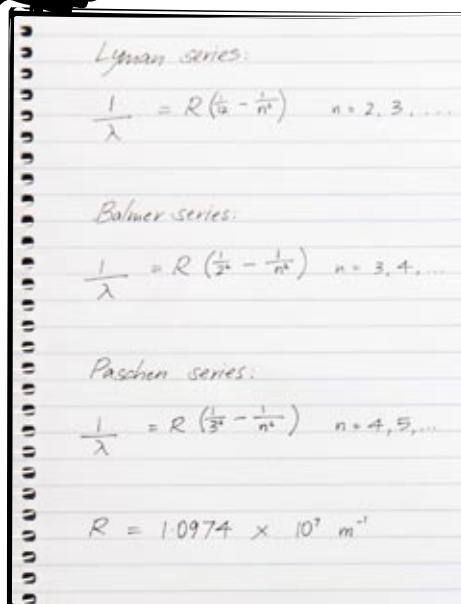 Lyman series:
1/λ = R (1/1² - 1/n²) n = 2, 3, ....
Balmer series:
1/λ = R (1/2² - 1/n²) n = 3, 4, ...
Paschen series:
1/λ = R (1/3² - 1/n²) n = 4, 5, ...
R = 1.0974 × 10⁷ m⁻¹